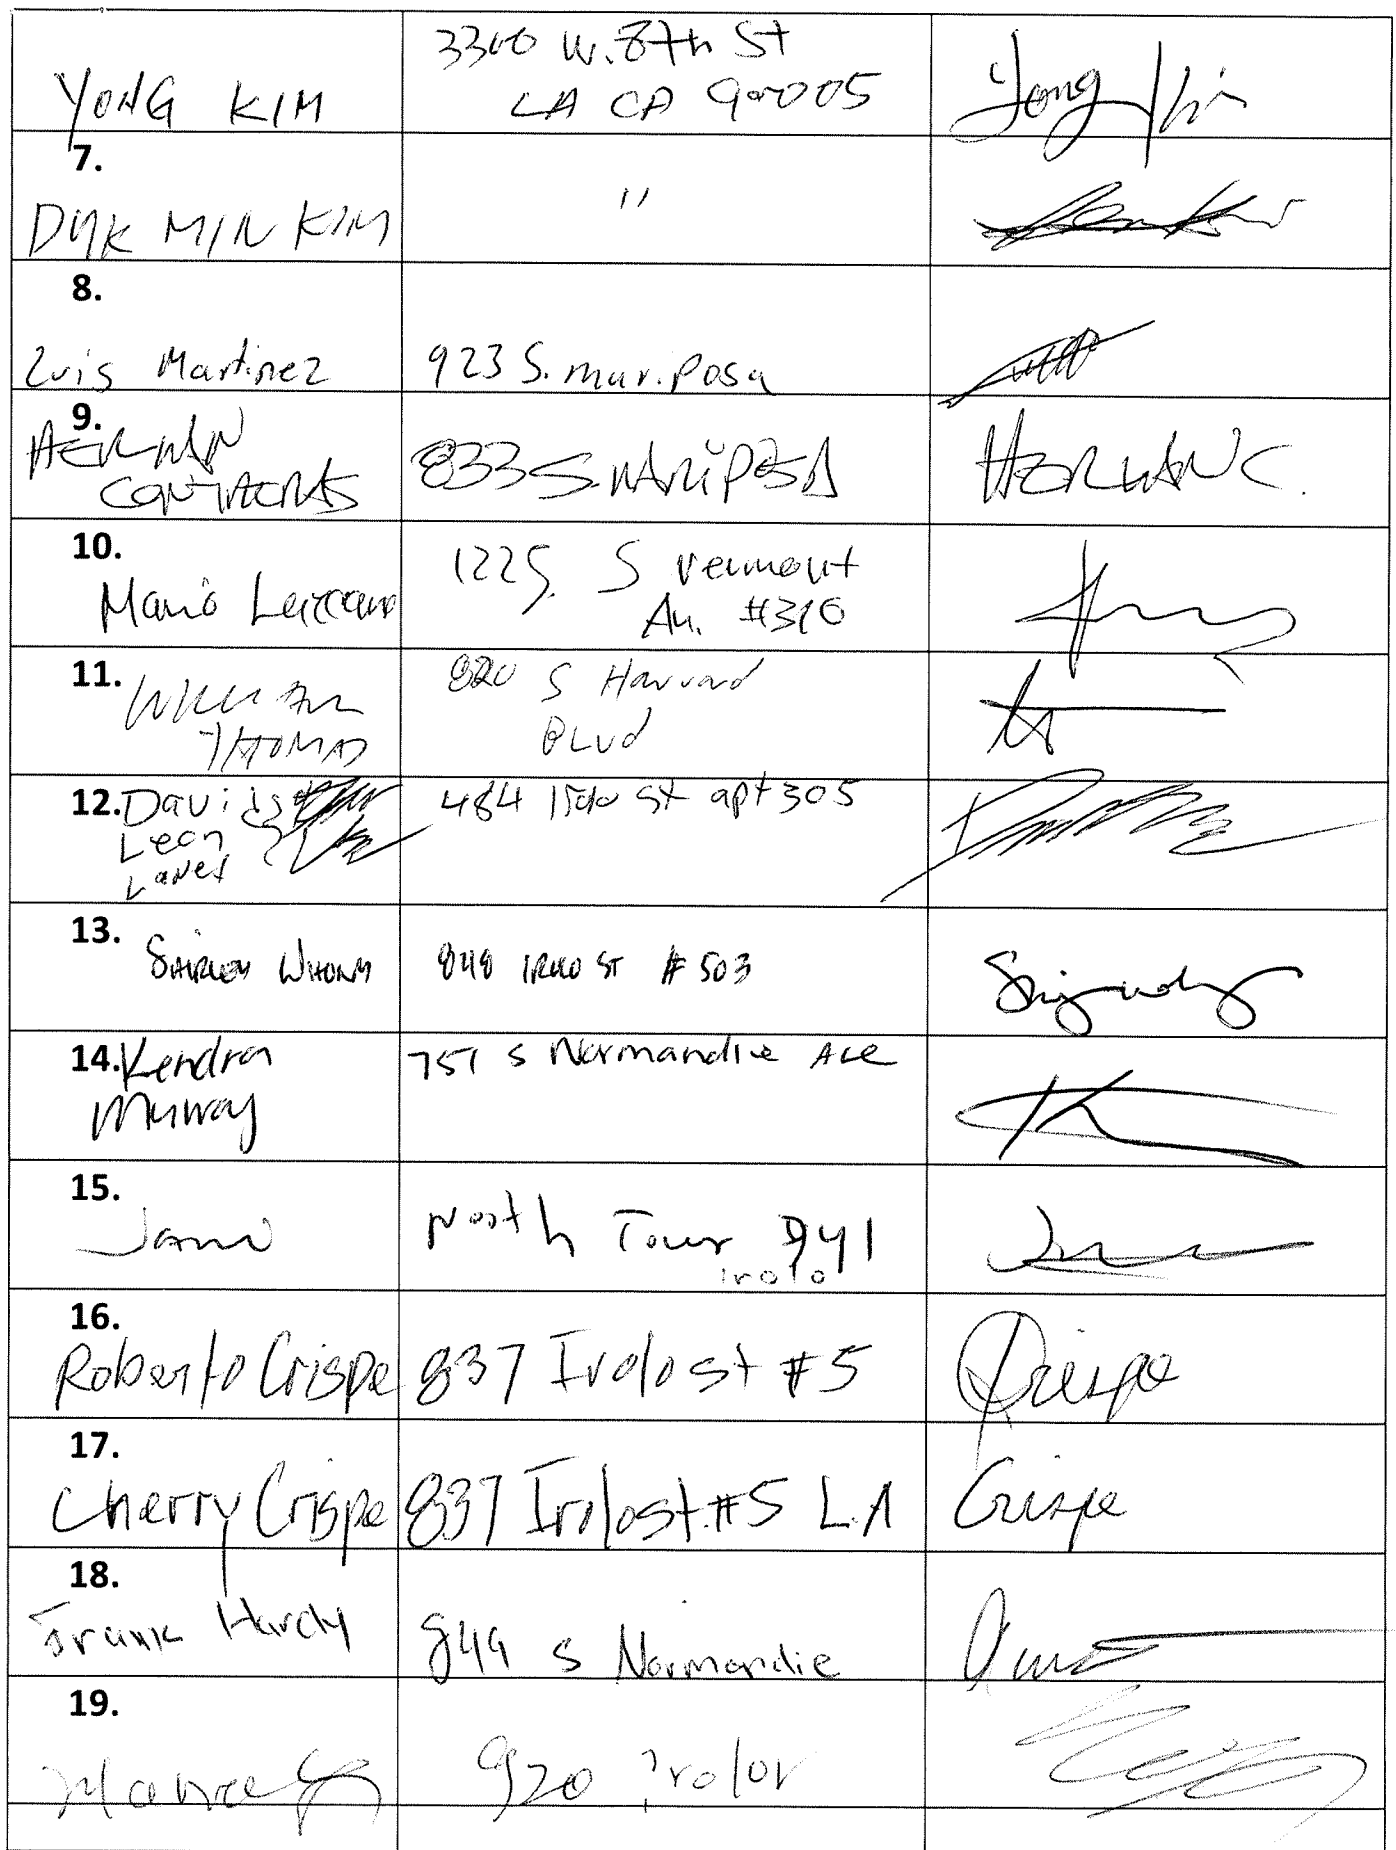 YONG KIM
3300 W. 8th St
LA CA 90005
Yong Kim
7.
DUK MIN KIM
"
8.
Luis Martinez
923 S. mariposa
9.
HERMAN
CONTRERAS
833 S. MARIPOSA
HERMAN C.
10.
Mario
1225 S Vermont
Av. #310
11.
WILLIAM
THOMAS
820 S Harvard
BLVD
12.
David
Leon
484 st apt 305
13.
SHIRLEY
848 IROLO ST # 503
14.
Kendra
Murray
757 S Normandie Ave
15.
North Tower 941
irolo
16.
Roberto Crispe
837 Irolo st #5
Crispe
17.
Cherry Crispe
837 Irolo st. #5 L.A
Crispe
18.
Frank Hardy
849 S Normandie
19.
920